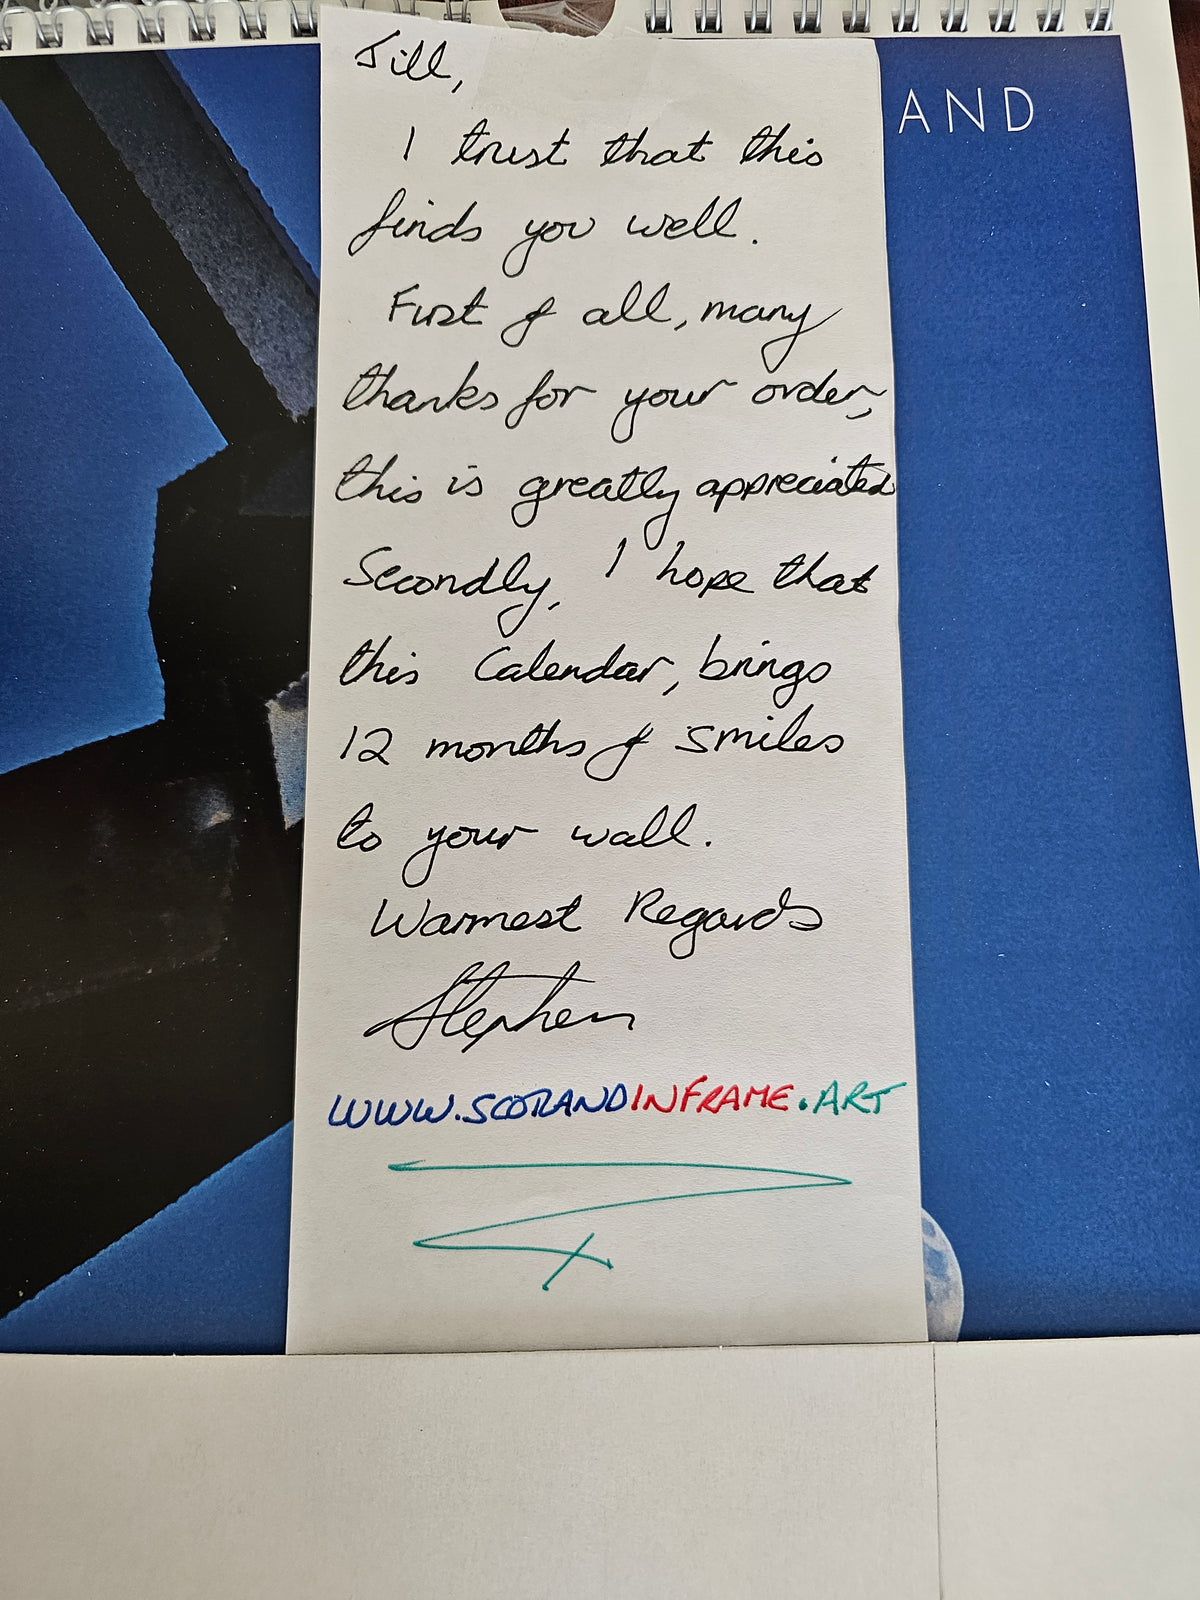 Jill,
AND
I trust that this
finds you well.
First of all, many
thanks for your order,
this is greatly appreciated
Secondly, I hope that
this Calendar, brings
12 months of smiles
to your wall.
Warmest Regards
Stephen
WWW.SCOTLANDINFRAME.ART
X